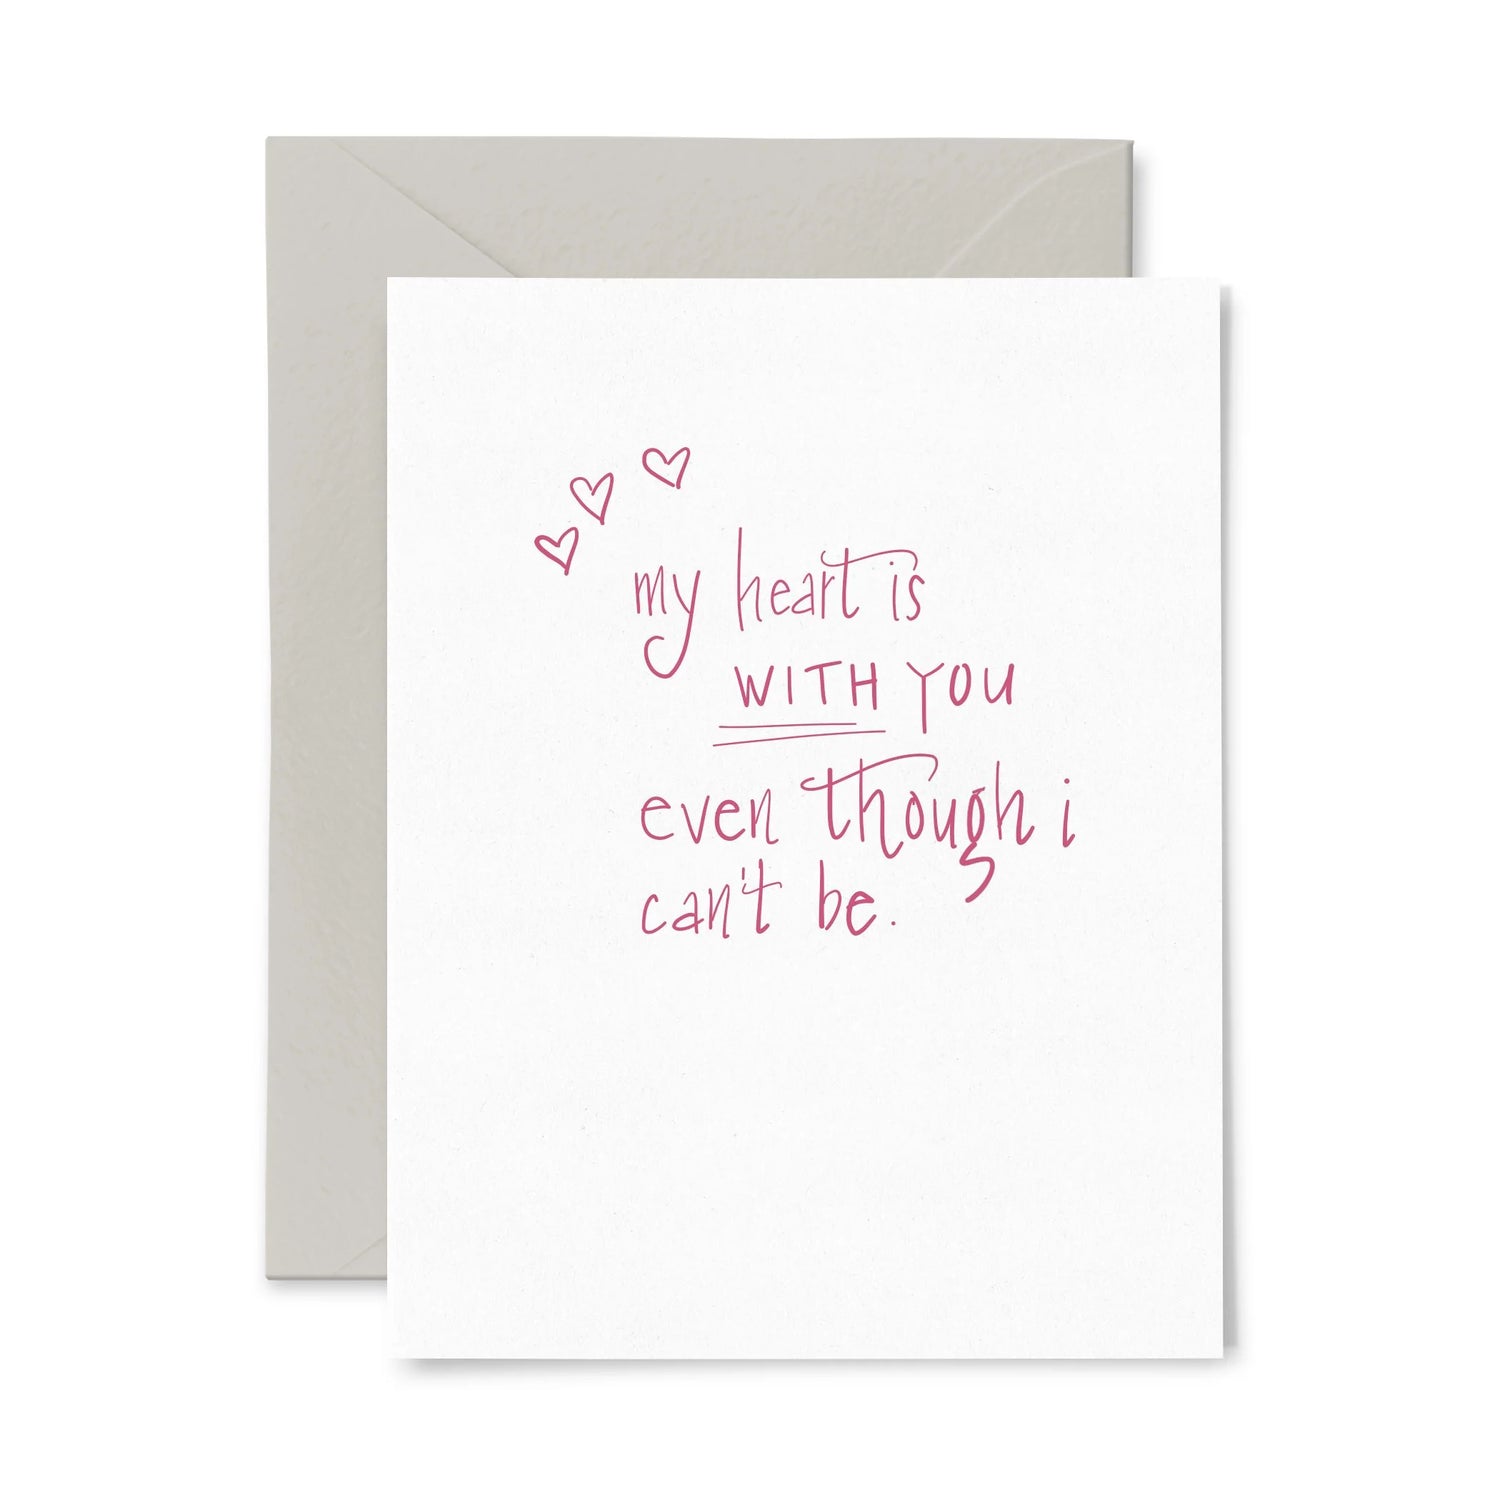 my heart is
WITH YOU
even though i
can't be.